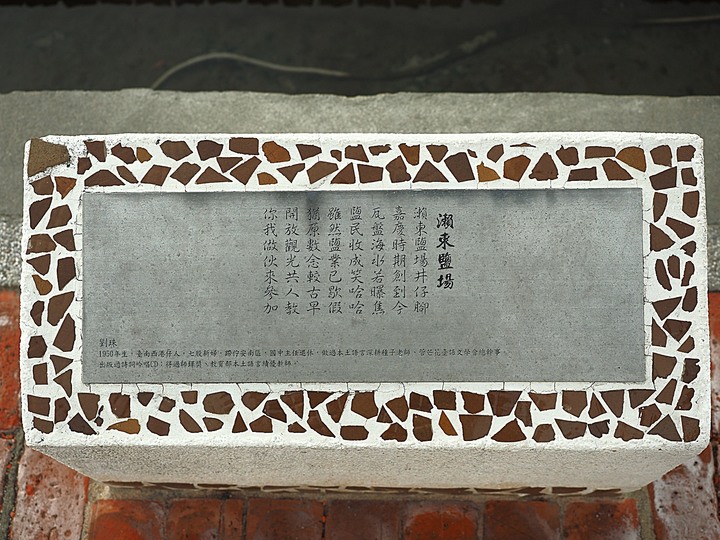 瀨東鹽場
瀨東鹽場井仔腳
嘉慶時期創到今
瓦盤海水若曝焦
鹽民收成笑哈哈
雖然鹽業已歇假
猶原數念較古早
開放觀光共人教
你我做伙來參加
劉珠
1950年生，臺南西港仔人，七股新婦，蹛佇安南區。國中主任退休，做過本土語言深耕種子老師、菅芒花臺語文學會總幹事。
出版過詩詞吟唱CD；得過師鐸獎、教育部本土語言績優教師。